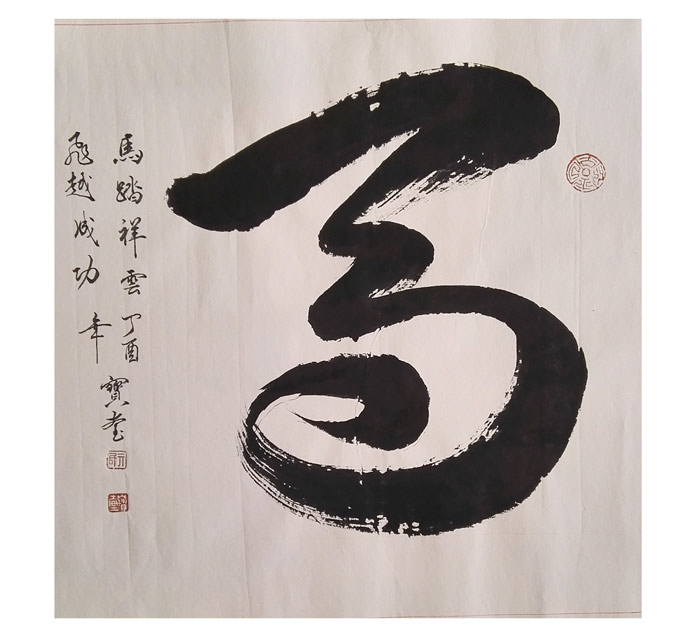 馬
馬踏祥雲
飛越成功
丁酉
年
寶